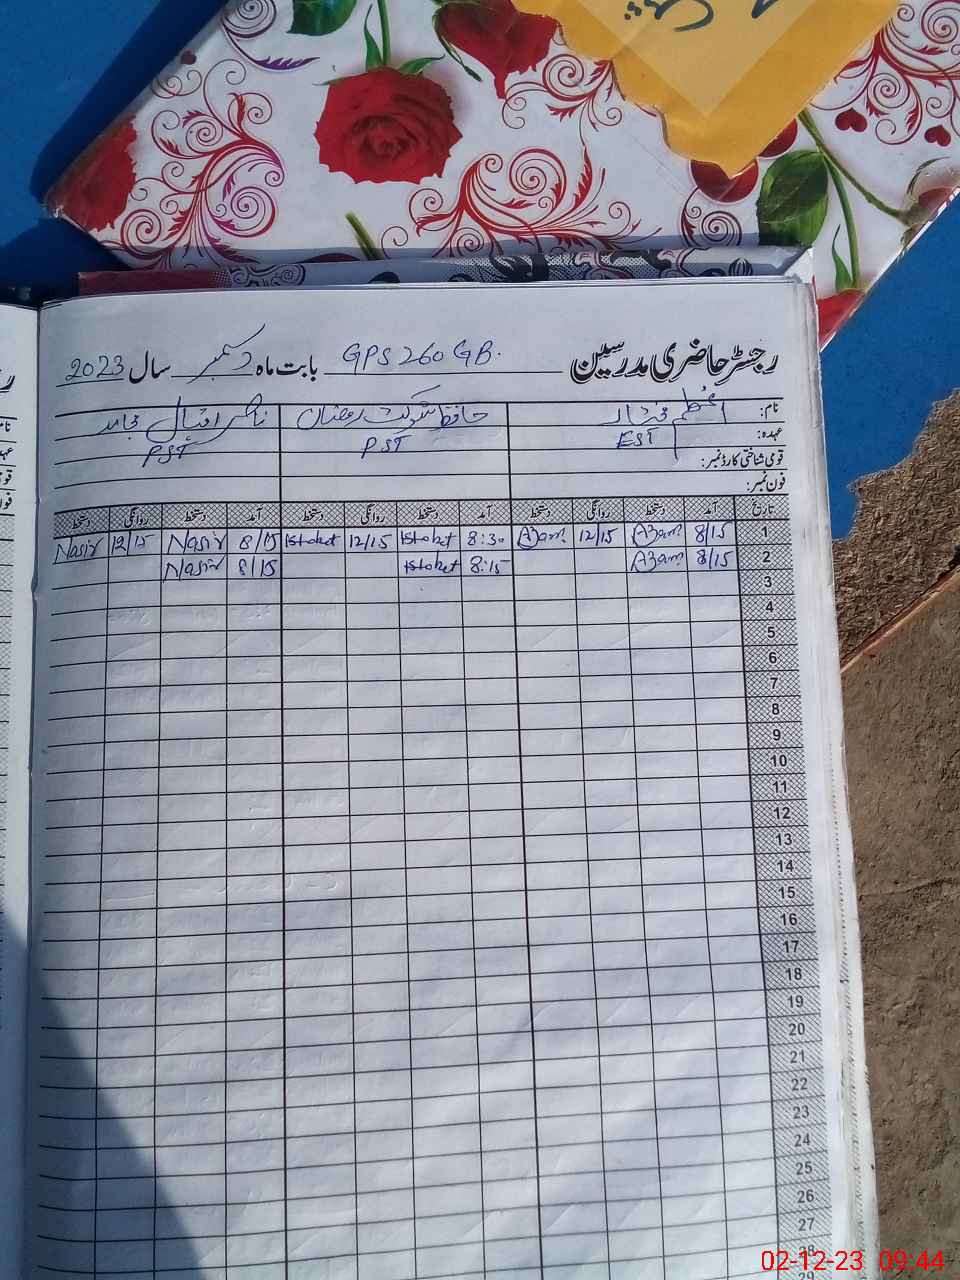 رجسٹر حاضری مدرسین GPS 260 GB. بابت ماہ دسمبر سال 2023
نام: اعظم مختار حافظ شوکت رمضان ناصر اقبال مجاہد
عہدہ: EST PST PST
قومی شناختی کارڈ نمبر:
فون نمبر:
تاریخ آمد دستخط روانگی دستخط آمد دستخط روانگی دستخط آمد دستخط روانگی دستخط
1 8/15 Azam 12/15 Azam 8:30 12/15 8/15 Nasir 12/15 Nasir
2 8/15 Azam 8:15 8/15 Nasir
3
4
5
6
7
8
9
10
11
12
13
14
15
16
17
18
19
20
21
22
23
24
25
26
27
28
29
نام
عہدہ
قو
فون
02-12-23 09:44